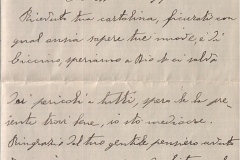 Ricevuto tua cartolina, figurati con
qual ansia sapere tue nuove, e di
speriamo a Dio che vi salvi
dai pericoli a tutti, spero che la pre-
sente trovi bene, io sto mediocre.
Ringrazio del tuo gentile pensiero